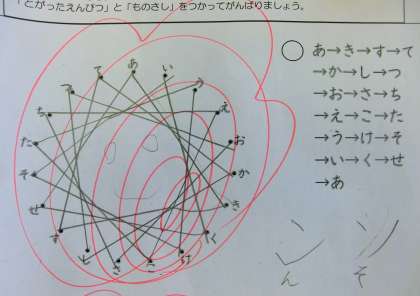 「とがったえんぴつ」と「ものさし」をつかってがんばりましょう。
あ→き→す→て
→か→し→つ
→お→さ→ち
→え→こ→た
→う→け→そ
→い→く→せ
→あ
あ
い
う
え
お
か
き
く
け
こ
さ
し
す
せ
そ
た
ち
つ
て
ん
そ